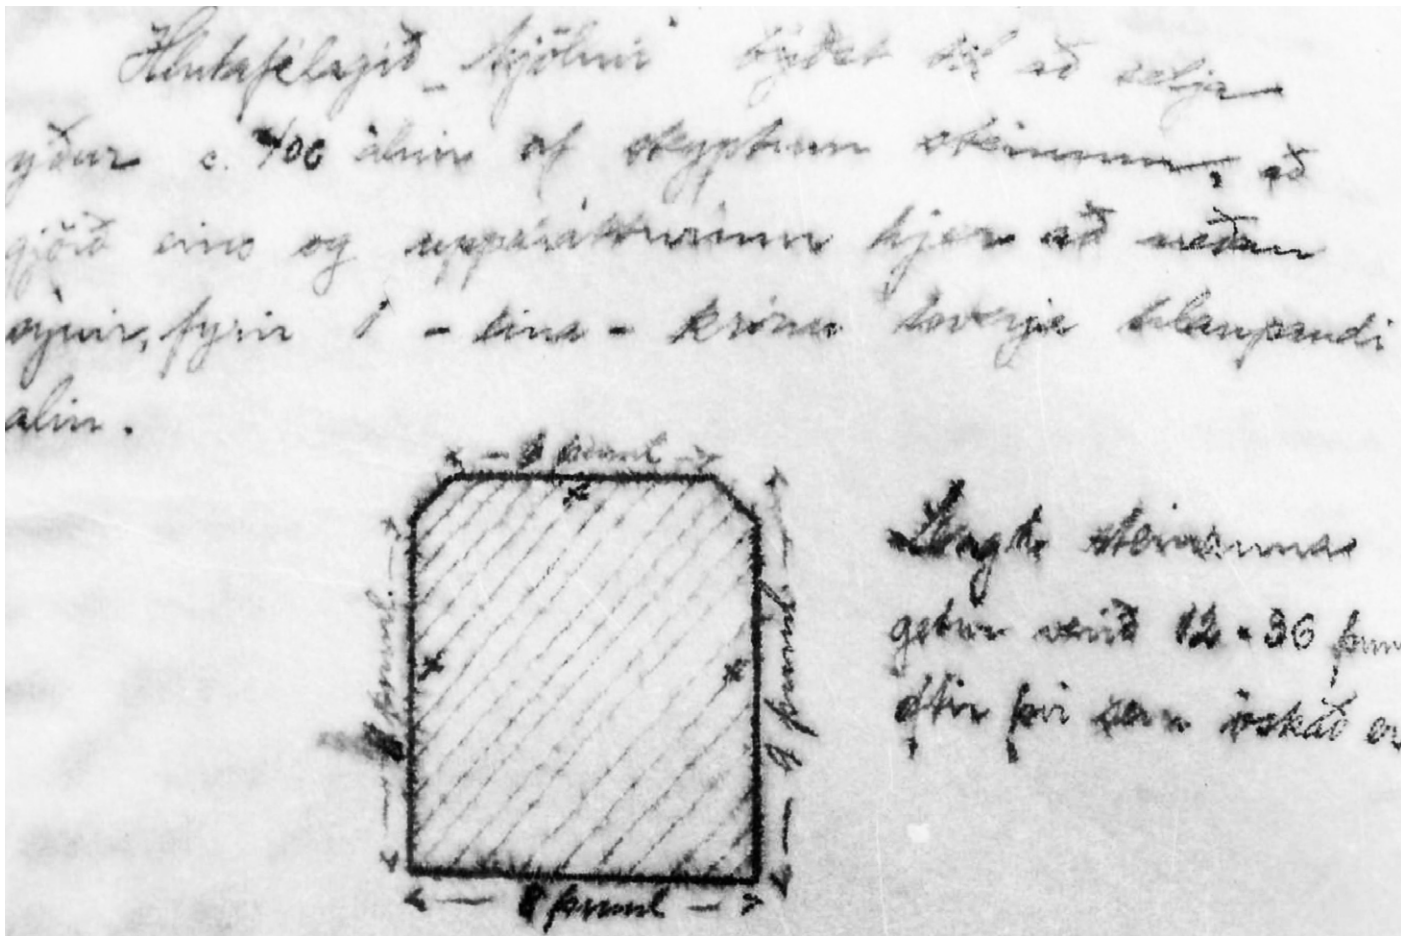 Hlutafélagið „Mjölnir“ býðst til að selja
yður c. 400 álnir af steyptum steinum, að
gjörð eins og uppdrátturinn hjer að neðan
sýnir, fyrir 1 - eina - krónu hverja hlaupandi
alin.
þuml
8 þuml.
9 þuml.
8 þuml
Lengd steinanna
getur verið 12 - 36 þum
eftir því sem óskað er